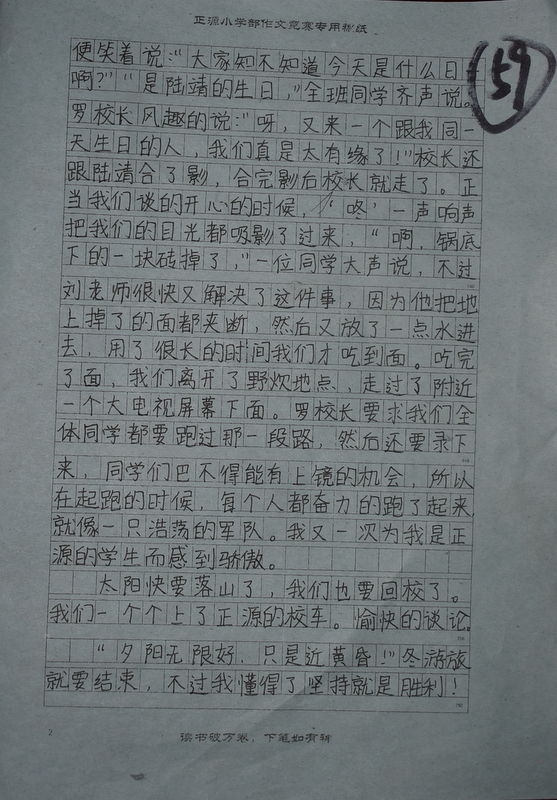 正源小学部作文竞赛专用稿纸
59
便笑着说:“大家知不知道今天是什么日子
啊?”“是陆靖的生日,”全班同学齐声说。
罗校长风趣的说:“呀,又来一个跟我同一
天生日的人,我们真是太有缘了!”校长还
跟陆靖合了影,合完影后校长就走了。正
当我们谈的开心的时候,“咚”一声响声
把我们的目光都吸影了过来,“啊,锅底
下的一块砖掉了,”一位同学大声说,不过
刘老师很快又解决了这件事,因为他把地
上掉了的面都夹断,然后又放了一点水进
去,用了很长的时间我们才吃到面。吃完
了面,我们离开了野炊地点,走过了附近
一个大电视屏幕下面。罗校长要求我们全
体同学都要跑过那一段路,然后还要录下
来,同学们巴不得能有上镜的机会,所以
在起跑的时候,每个人都奋力的跑了起来,
就像一只浩荡的军队。我又一次为我是正
源的学生而感到骄傲。
太阳快要落山了,我们也要回校了。
我们一个个上了正源的校车。愉快的谈论。
“夕阳无限好,只是近黄昏!”冬游旅
就要结束,不过我懂得了坚持就是胜利!
2
读书破万卷,下笔如有神